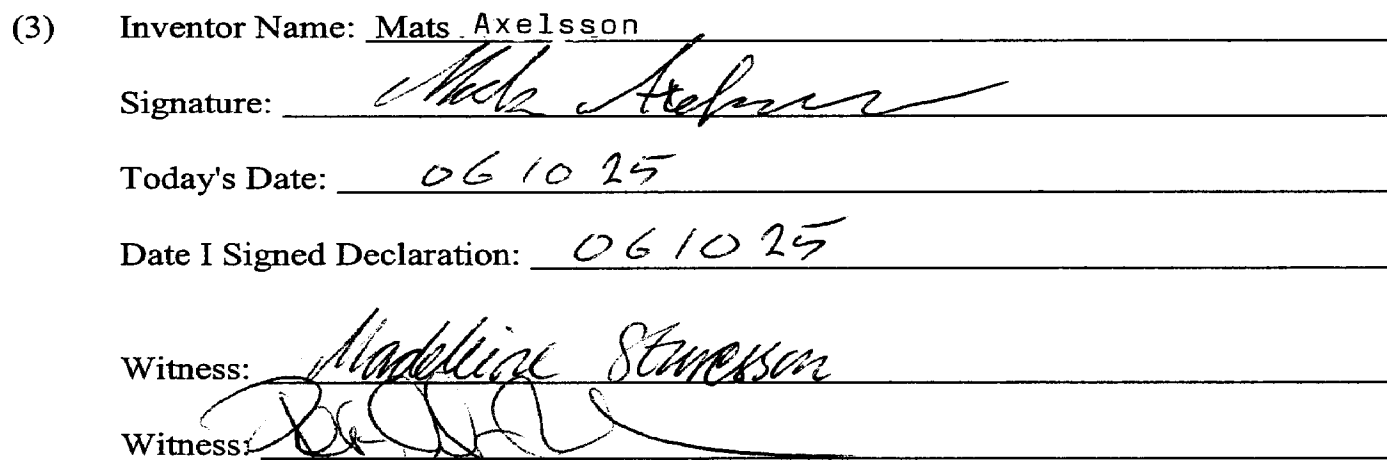 (3) Inventor Name: Mats Axelsson
Signature: Mats Axelsson
Today's Date: 06 10 25
Date I Signed Declaration: 06 10 25
Witness: Madeleine Sturesson
Witness: